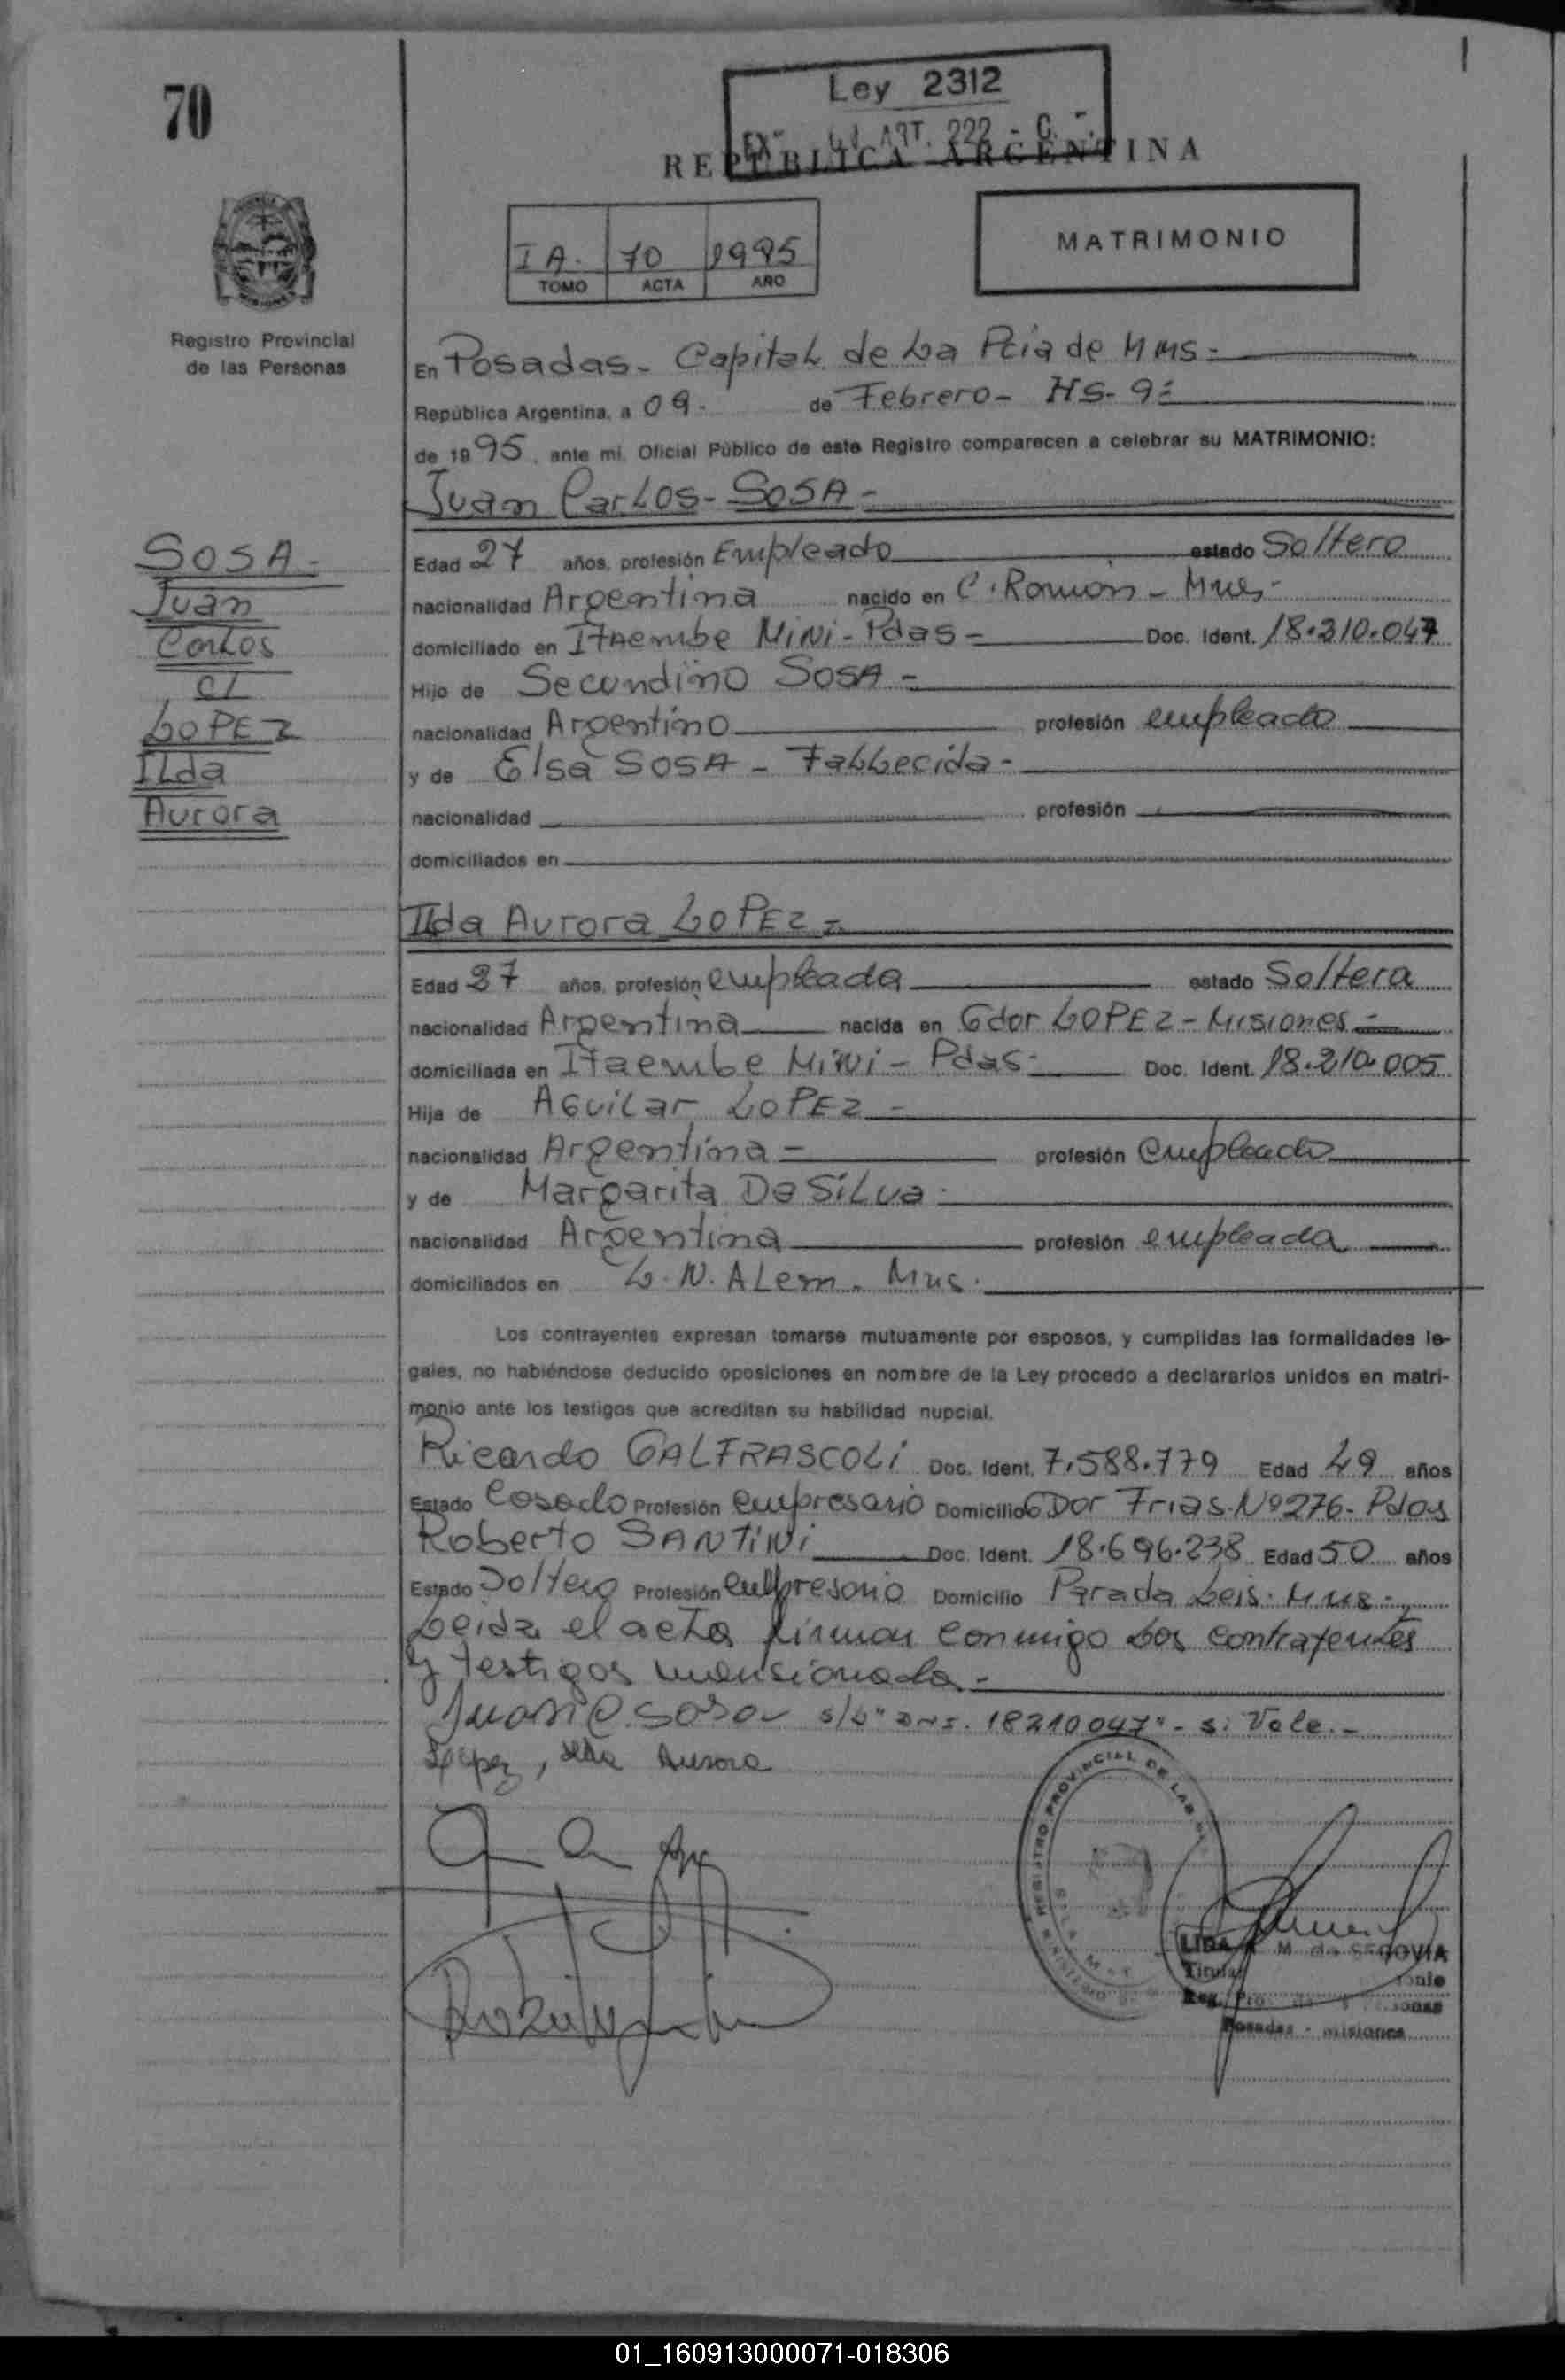 70
Ley 2312
ART. 222 - C.
REPUBLICA ARGENTINA
I A. 70 1995
TOMO ACTA AÑO
MATRIMONIO
Registro Provincial
de las Personas
En Posadas - Capital de La Pcia de Mnes -
República Argentina, a 09 - de Febrero - HS - 9 -
de 1995, ante mi, Oficial Público de este Registro comparecen a celebrar su MATRIMONIO:
Juan Carlos - SOSA -
SOSA -
Juan
Carlos
c/
LOPEZ
ILda
Aurora
Edad 27 años, profesión Empleado estado Soltero
nacionalidad Argentina nacido en C. Ramón - Mnes -
domiciliado en Itaembe Mini - Pdas - Doc. Ident. 18.210.047
Hijo de Secundino SOSA -
nacionalidad Argentino profesión empleado
y de Elsa SOSA - Fallecida -
nacionalidad profesión
domiciliados en
Ilda Aurora LOPEZ -
Edad 27 años, profesión empleada estado Soltera
nacionalidad Argentina nacida en Gdor LOPEZ - Misiones -
domiciliada en Itaembe Mini - Pdas - Doc. Ident. 18.210.005
Hija de Aguilar LOPEZ -
nacionalidad Argentina - profesión empleado
y de Margarita Da Silva -
nacionalidad Argentina profesión empleada
domiciliados en L. N. Alem - Mnes.
Los contrayentes expresan tomarse mutuamente por esposos, y cumplidas las formalidades le-
gales, no habiéndose deducido oposiciones en nombre de la Ley procedo a declararlos unidos en matri-
monio ante los testigos que acreditan su habilidad nupcial.
Ricardo GALFRASCOLI Doc. Ident. 7.588.779 Edad 49 años
Estado Casado Profesión empresario Domicilio Gdor Frias Nº 276 - Pdas
Roberto SANTINI Doc. Ident. 18.696.238 Edad 50 años
Estado Soltero Profesión empresario Domicilio Parada Leis - Mnes -
Leida el acta firman conmigo los contrayentes
y testigos mensionado -
Juan C. Sosa 18210047" - Si Vale. -
Lopez, Ilda Aurora
REGISTRO PROVINCIAL DE LAS
M. de SEGOVIA
Titular
Reg. Pro. de
Posadas - misiones
01_160913000071-018306